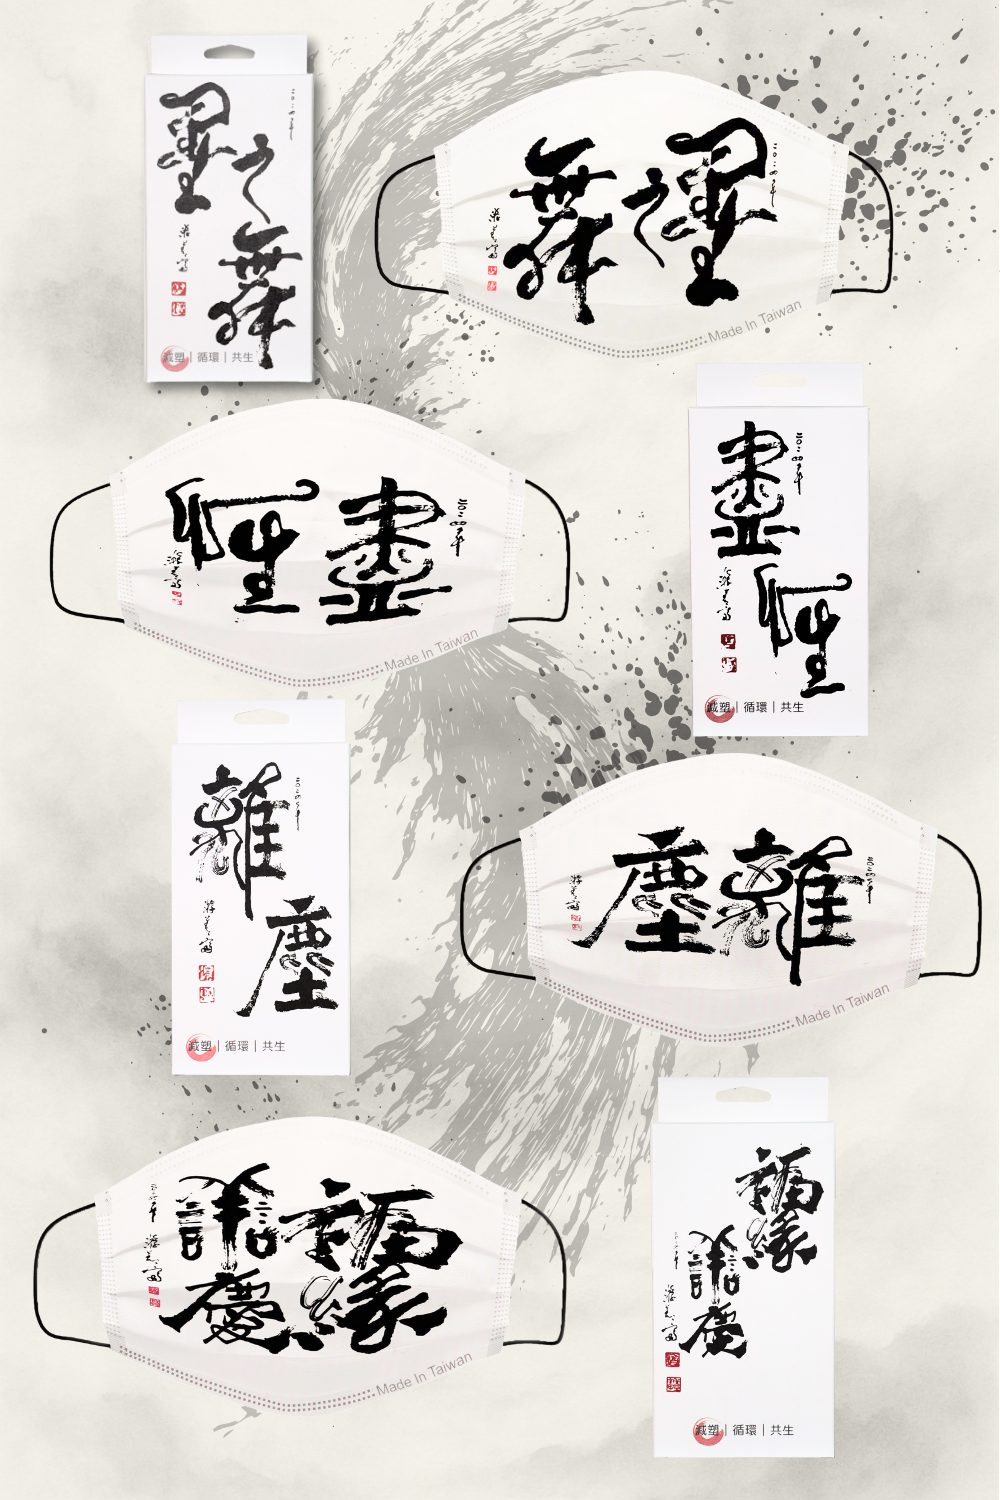 墨之舞
二〇二四年
減塑｜循環｜共生
墨之舞
二〇二四年
Made In Taiwan
盡性
二〇二四年
Made In Taiwan
盡性
二〇二四年
減塑｜循環｜共生
離塵
二〇二四年
減塑｜循環｜共生
離塵
二〇二四年
Made In Taiwan
福緣
譱慶
二〇二四年
Made In Taiwan
福緣
譱慶
二〇二四年
減塑｜循環｜共生